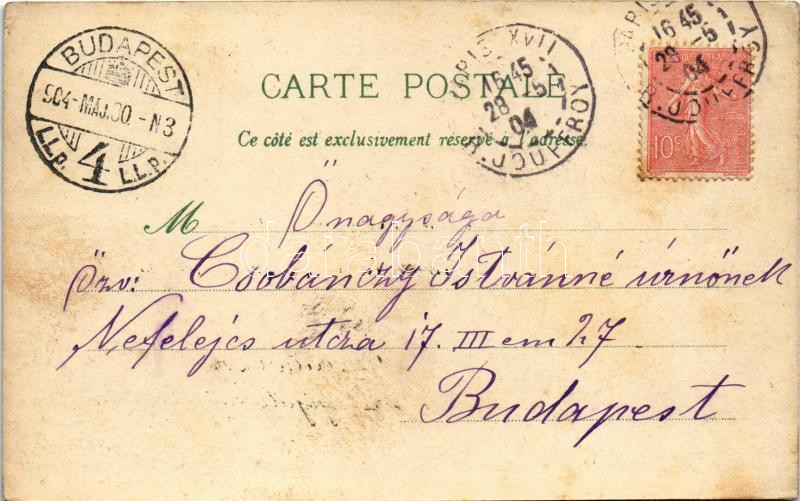 BUDAPEST
904 - MÁJ. 30. - N3
4
LL.P. LL.P.
CARTE POSTALE
Ce côté est exclusivement réservé à l'adresse.
PARIS XVII
16 45
28 -5
04
R. JOUFFROY
PARIS
16 45
28 -5
04
R. JOUFFROY
10c
M Őnagysága
özv: Csobánczy Istvánné úrnőnek
Nefelejcs utcza 17. III em 27
Budapest
darabanth